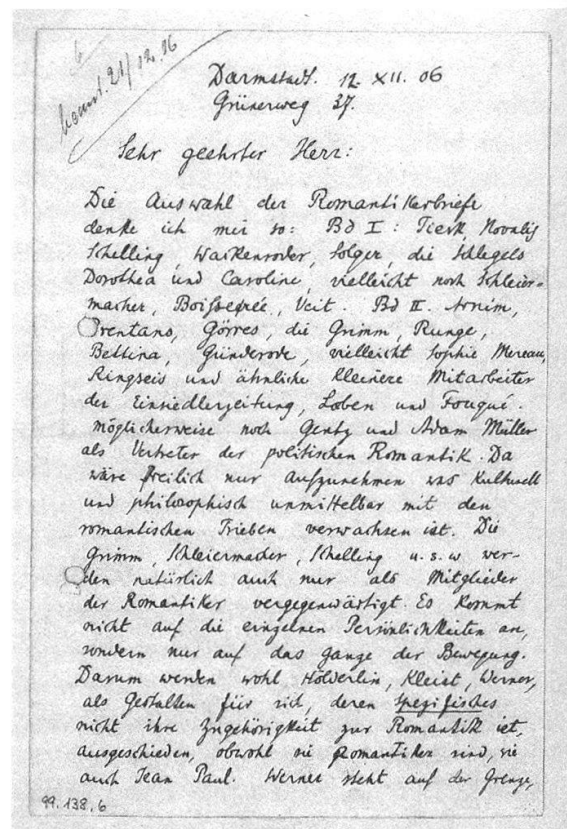 beant. 21/12.06
Darmstadt. 12 XII. 06
Grünerweg 37.
Sehr geehrter Herr:
Die Auswahl der Romantikerbriefe
denke ich mir so: Bd I: Tieck Novalis
Schelling, Wackenroder, Solger, die Schlegels
Dorothea und Caroline, vielleicht noch Schleier-
macher, Boisserée, Veit. Bd II. Arnim,
Brentano, Görres, die Grimm, Runge,
Bettina, Günderode, vielleicht Sophie Mereau,
Ringseis und ähnliche kleinere Mitarbeiter
der Einsiedlerzeitung, Loben und Fouqué.
möglicherweise noch Gentz und Adam Müller
als Vertreter der politischen Romantik. Da
wäre freilich nur aufzunehmen was kulturell
und philosophisch unmittelbar mit den
romantischen Trieben verwachsen ist. Die
Grimm, Schleiermacher, Schelling u.s.w wer-
den natürlich auch nur als Mitglieder
der Romantiker vergegenwärtigt. Es kommt
nicht auf die einzelnen Persönlichkeiten an,
sondern nur auf das ganze der Bewegung.
Darum werden wohl Hölderlin, Kleist, Werner,
als Gestalten für sich, deren spezifisches
nicht ihre Zugehörigkeit zur Romantik ist,
ausgeschieden, obwohl sie Romantiker sind, wie
auch Jean Paul. Werner steht auf der Grenze,
99.138.6